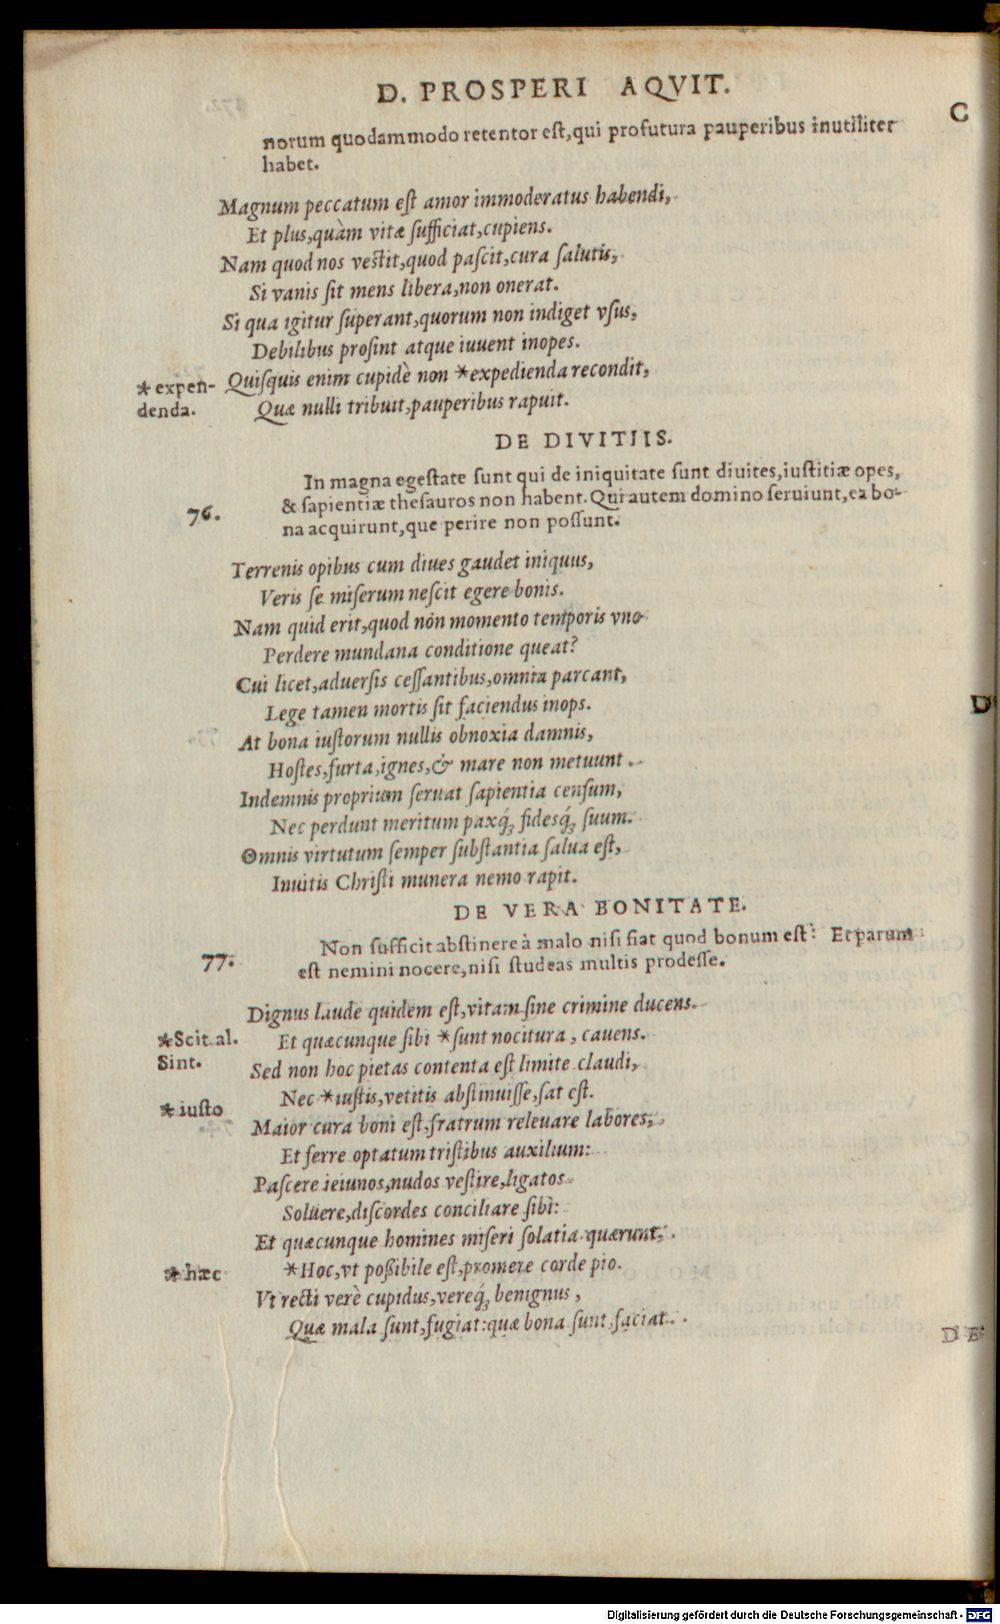 D. PROSPERI AQVIT.
norum quodammodo retentor eſt, qui profutura pauperibus inutiliter
habet.
Magnum peccatum eſt amor immoderatus habendi,
Et plus, quàm vitæ ſufficiat, cupiens.
Nam quod nos veſtit, quod paſcit, cura ſalutis,
Si vanis ſit mens libera, non onerat.
Si qua igitur ſuperant, quorum non indiget vſus,
Debilibus proſint atque iuuent inopes.
Quiſquis enim cupidè non *expedienda recondit,
Quæ nulli tribuit, pauperibus rapuit.
*expen-
denda.
DE DIVITIIS.
76.
In magna egeſtate ſunt qui de iniquitate ſunt diuites, iuſtitiæ opes,
& ſapientiæ theſauros non habent. Qui autem domino ſeruiunt, ea bo-
na acquirunt, que perire non poſſunt.
Terrenis opibus cum diues gaudet iniquus,
Veris ſe miſerum neſcit egere bonis.
Nam quid erit, quod nón momento temporis vno
Perdere mundana conditione queat?
Cui licet, aduerſis ceſſantibus, omnia parcant,
Lege tamen mortis ſit faciendus inops.
At bona iuſtorum nullis obnoxia damnis,
Hoſtes, furta, ignes, & mare non metuunt.
Indemnis proprium ſeruat ſapientia cenſum,
Nec perdunt meritum paxq́ꝫ fidesq́ꝫ ſuum.
Omnis virtutum ſemper ſubſtantia ſalua eſt,
Inuitis Chriſti munera nemo rapit.
DE VERA BONITATE.
77.
Non ſufficit abſtinere à malo niſi fiat quod bonum eſt: Et parum
eſt nemini nocere, niſi ſtudeas multis prodeſſe.
Dignus laude quidem eſt, vitam ſine crimine ducens.
Et quæcunque ſibi *ſunt nocitura, cauens.
*Scit. al.
Sint.
Sed non hoc pietas contenta eſt limite claudi,
Nec *iuſtis, vetitis abſtinuiſſe, ſat eſt.
*iuſto
Maior cura boni eſt, fratrum releuare labores,
Et ferre optatum triſtibus auxilium:
Paſcere ieiunos, nudos veſtire, ligatos
Soluere, diſcordes conciliare ſibi:
Et quæcunque homines miſeri ſolatia quærunt,
*Hoc, vt poßibile eſt, promere corde pio.
*hæc
Vt recti verè cupidus, vereq́ꝫ benignus,
Quæ mala ſunt, fugiat: quæ bona ſunt, faciat.
C
D
DE
Digitalisierung gefördert durch die Deutsche Forschungsgemeinschaft - DFG